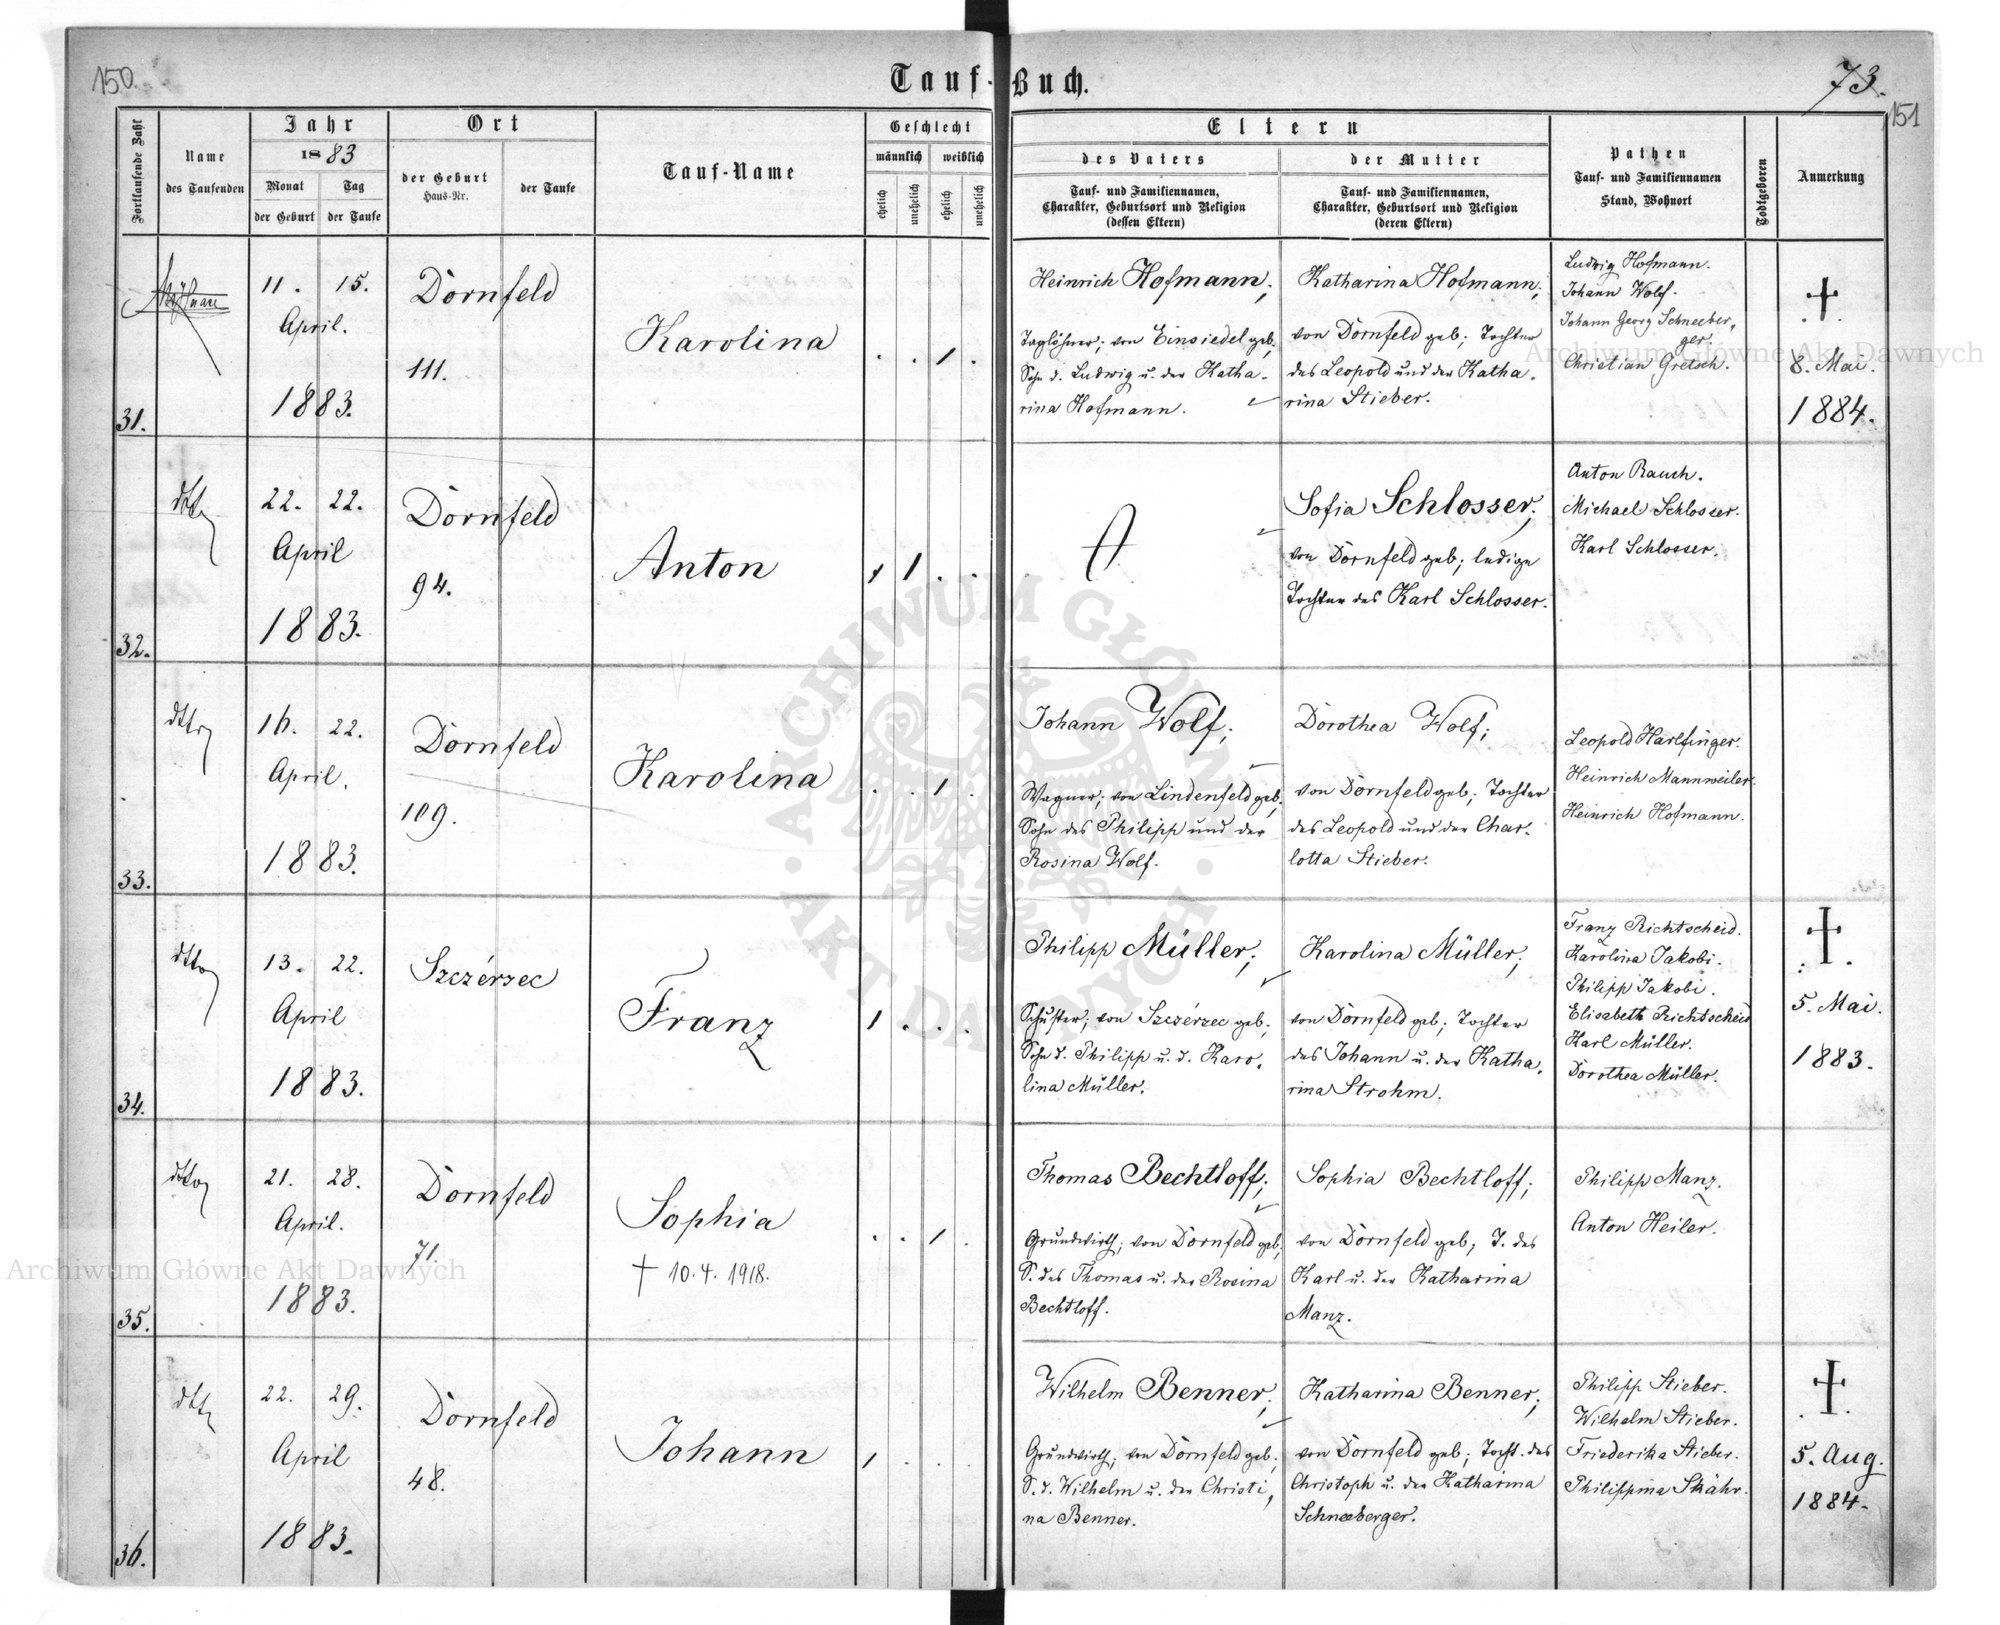 150.
Tauf-Buch.
73.
151
Fortlaufende Zahl
Name
des Taufenden
Jahr
1883
Monat
Tag
der Geburt
der Taufe
Ort
der Geburt
Haus-Nr.
der Taufe
Tauf-Name
Geschlecht
männlich
weiblich
ehelich
unehelich
ehelich
unehelich
Eltern
des Vaters
der Mutter
Tauf- und Familiennamen,
Charakter, Geburtsort und Religion
(dessen Eltern)
Tauf- und Familiennamen,
Charakter, Geburtsort und Religion
(deren Eltern)
Pathen
Tauf- und Familiennamen
Stand, Wohnort
Todtgeboren
Anmerkung
31.
11. 15.
April.
1883.
Dornfeld
111.
Karolina
. . 1 .
Heinrich Hofmann;
Taglöhner; von Einsiedel geb;
Sohn d. Ludwig u. der Katha-
rina Hofmann.
Katharina Hofmann;
von Dornfeld geb; Tochter
des Leopold und der Katha-
rina Stieber.
Ludwig Hofmann.
Johann Wolf.
Johann Georg Schneeber-
ger.
Christian Gretsch.
†
8. Mai.
1884.
32.
dtto
22. 22.
April
1883.
Dornfeld
94.
Anton
1 . .
Sofia Schlosser;
von Dornfeld geb; ledige
Tochter des Karl Schlosser.
Anton Rauch.
Michael Schlosser.
Karl Schlosser.
33.
dtto
16. 22.
April.
1883.
Dornfeld
109.
Karolina
. . 1 .
Johann Wolf;
Wagner; von Lindenfeld geb;
Sohn des Philipp und der
Rosina Wolf.
Dorothea Wolf;
von Dornfeld geb; Tochter
des Leopold und der Char-
lotta Stieber.
Leopold Harlfinger.
Heinrich Mannweiler.
Heinrich Hofmann.
34.
dtto
13. 22.
April
1883.
Szczérzec
Franz
1 . . .
Philipp Müller;
Schuster; von Szczérzec geb;
Sohn d. Philipp u. d. Karo-
lina Müller.
Karolina Müller;
von Dornfeld geb; Tochter
des Johann u. der Katha-
rina Strohm.
Franz Richtscheid.
Karolina Jakobi.
Philipp Jakobi.
Elisabeth Richtscheid
Karl Müller.
Dorothea Müller.
†
5. Mai.
1883.
35.
dtto
21. 28.
April.
1883.
Dornfeld
71.
Sophia
† 10.4.1918.
. . 1 .
Thomas Bechtloff;
Grundwirth; von Dornfeld geb;
S. des Thomas u. der Rosina
Bechtloff.
Sophia Bechtloff;
von Dornfeld geb; T. des
Karl u. der Katharina
Manz.
Philipp Manz.
Anton Heiler.
36.
dtto
22. 29.
April
1883.
Dornfeld
48.
Johann
1 . . .
Wilhelm Benner;
Grundwirth; von Dornfeld geb;
S. d. Wilhelm u. der Christi-
na Benner.
Katharina Benner;
von Dornfeld geb; Tocht. des
Christoph u. der Katharina
Schneeberger.
Philipp Stieber.
Wilhelm Stieber.
Friederika Stieber.
Philippina
†
5. Aug.
1884.
Archiwum Główne Akt Dawnych
Archiwum Główne Akt Dawnych
ARCHIWUM GŁÓWNE · AKT DAWNYCH ·